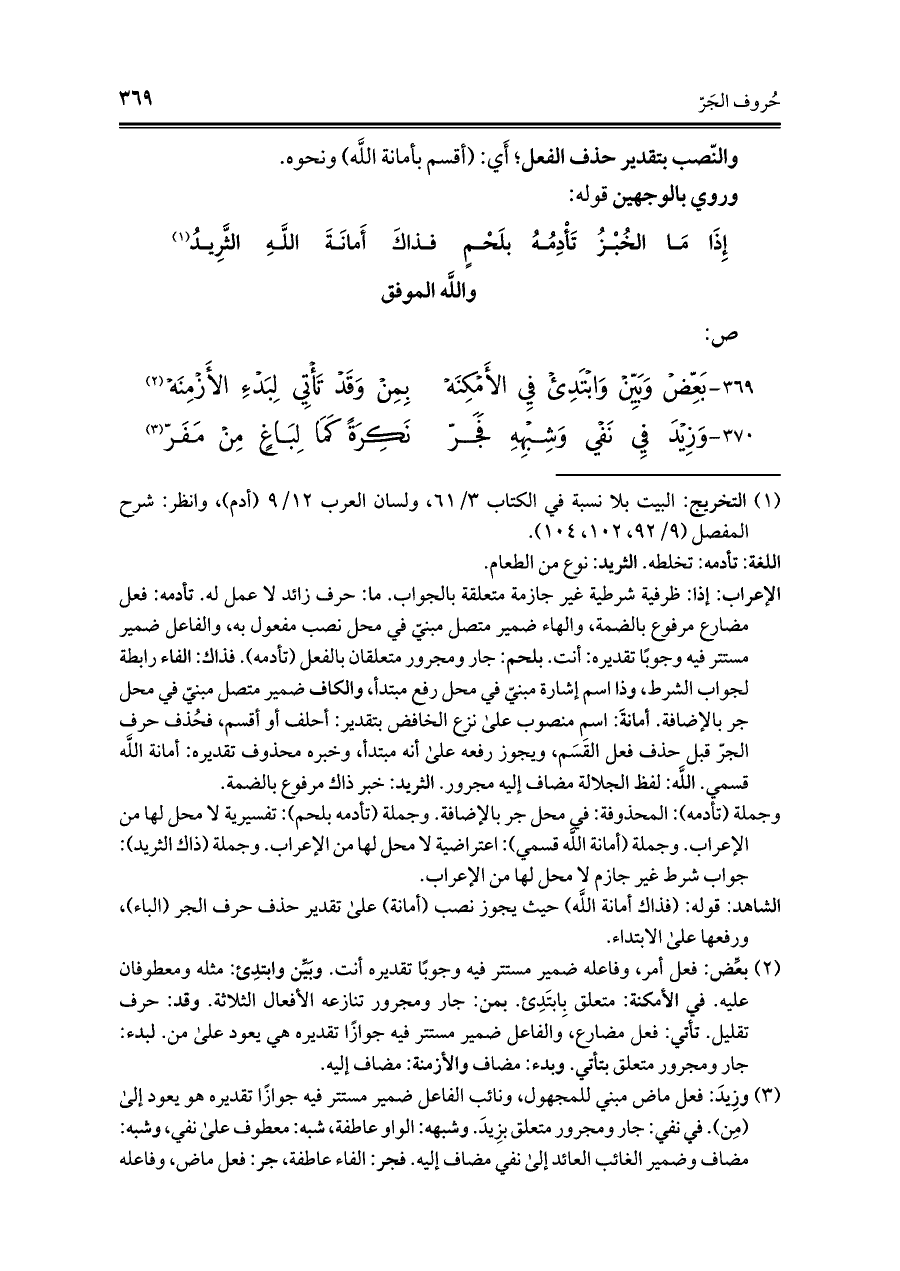 حُروف الجَرّ ٣٦٩
والنّصب بتقدير حذف الفعل؛ أَي: (أقسم بأمانة اللَّه) ونحوه.
وروي بالوجهين قوله:
إِذَا مَـا الخُبْـزُ تَأْدِمُـهُ بلَحْـمٍ فـذاكَ أَمانَـةَ اللَّـهِ الثَّرِيـدُ(١)
واللَّه الموفق
ص:
٣٦٩-بَعِّضْ وَبَيِّنْ وَابْتَدِئْ فِي الأَمْكِنَهْ بِمِنْ وَقَدْ تَأْتِي لِبَدْءِ الأَزْمِنَهْ(٢)
٣٧٠-وَزِيْدَ فِي نَفْيٍ وَشِبْهِهِ فَجَرّ نَكِرَةً كَمَا لِبَاغٍ مِنْ مَفَرّ(٣)
(١) التخريج: البيت بلا نسبة في الكتاب ٣/ ٦١، ولسان العرب ١٢/ ٩ (أدم)، وانظر: شرح
المفصل (٩/ ٩٢، ١٠٢، ١٠٤).
اللغة: تأدمه: تخلطه. الثريد: نوع من الطعام.
الإعراب: إذا: ظرفية شرطية غير جازمة متعلقة بالجواب. ما: حرف زائد لا عمل له. تأدمه: فعل
مضارع مرفوع بالضمة، والهاء ضمير متصل مبنيّ في محل نصب مفعول به، والفاعل ضمير
مستتر فيه وجوبًا تقديره: أنت. بلحم: جار ومجرور متعلقان بالفعل (تأدمه). فذاك: الفاء رابطة
لجواب الشرط، وذا اسم إشارة مبنيّ في محل رفع مبتدأ، والكاف ضمير متصل مبنيّ في محل
جر بالإضافة. أمانةَ: اسم منصوب علىٰ نزع الخافض بتقدير: أحلف أو أقسم، فحُذف حرف
الجرّ قبل حذف فعل القَسَم، ويجوز رفعه علىٰ أنه مبتدأ، وخبره محذوف تقديره: أمانة اللَّه
قسمي. اللَّه: لفظ الجلالة مضاف إليه مجرور. الثريد: خبر ذاك مرفوع بالضمة.
وجملة (تأدمه): المحذوفة: في محل جر بالإضافة. وجملة (تأدمه بلحم): تفسيرية لا محل لها من
الإعراب. وجملة (أمانة اللَّه قسمي): اعتراضية لا محل لها من الإعراب. وجملة (ذاك الثريد):
جواب شرط غير جازم لا محل لها من الإعراب.
الشاهد: قوله: (فذاك أمانة اللَّه) حيث يجوز نصب (أمانة) علىٰ تقدير حذف حرف الجر (الباء)،
ورفعها علىٰ الابتداء.
(٢) بعِّض: فعل أمر، وفاعله ضمير مستتر فيه وجوبًا تقديره أنت. وبَيِّن وابتدِئ: مثله ومعطوفان
عليه. في الأمكنة: متعلق بِابتَدِئ. بمن: جار ومجرور تنازعه الأفعال الثلاثة. وقد: حرف
تقليل. تأتي: فعل مضارع، والفاعل ضمير مستتر فيه جوازًا تقديره هي يعود علىٰ من. لبدء:
جار ومجرور متعلق بتأتي. وبدء: مضاف والأزمنة: مضاف إليه.
(٣) وزِيدَ: فعل ماض مبني للمجهول، ونائب الفاعل ضمير مستتر فيه جوازًا تقديره هو يعود إلىٰ
(مِن). في نفي: جار ومجرور متعلق بزِيدَ. وشبهه: الواو عاطفة، شبه: معطوف علىٰ نفي، وشبه:
مضاف وضمير الغائب العائد إلىٰ نفي مضاف إليه. فجر: الفاء عاطفة، جر: فعل ماض، وفاعله